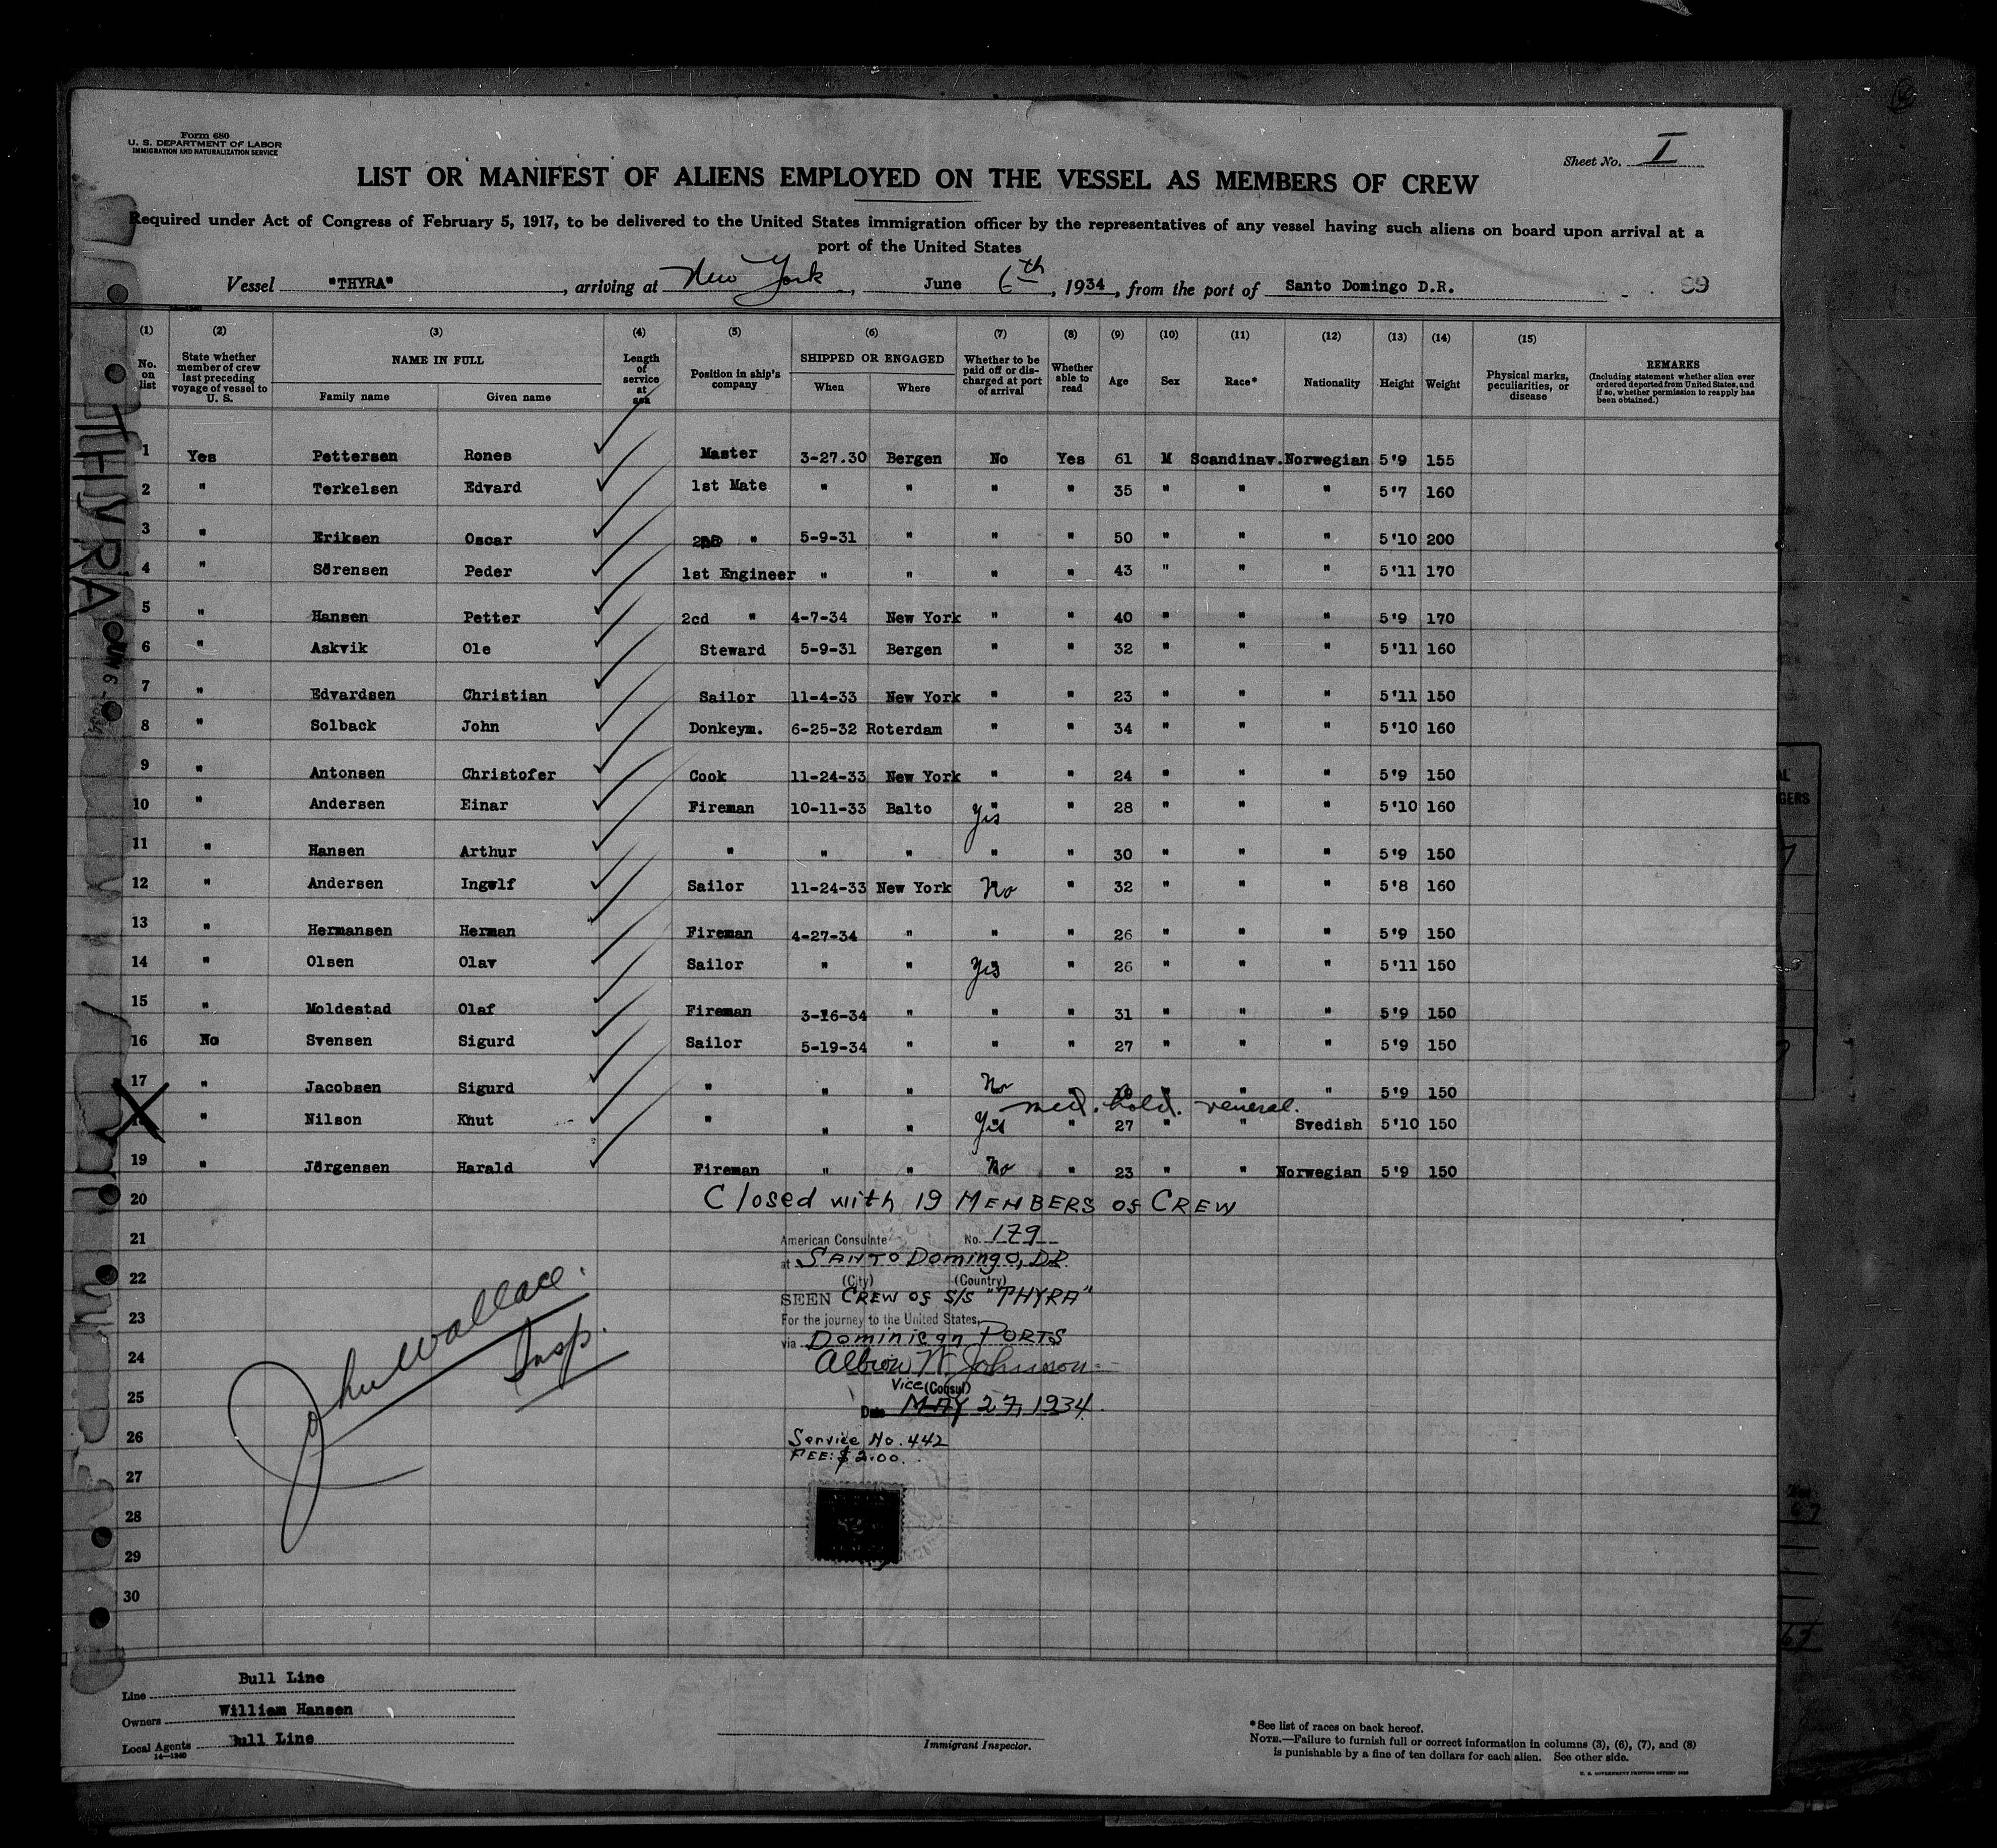 Form 680
U. S. DEPARTMENT OF LABOR
IMMIGRATION AND NATURALIZATION SERVICE
Sheet No. I
LIST OR MANIFEST OF ALIENS EMPLOYED ON THE VESSEL AS MEMBERS OF CREW
Required under Act of Congress of February 5, 1917, to be delivered to the United States immigration officer by the representatives of any vessel having such aliens on board upon arrival at a
port of the United States
Vessel "THYRA", arriving at New York, June 6th, 1934, from the port of Santo Domingo D.R. 99
(1) (2) (3) (4) (5) (6) (7) (8) (9) (10) (11) (12) (13) (14) (15)
No. on list State whether member of crew last preceding voyage of vessel to U. S. NAME IN FULL Family name Given name Length of service at sea Position in ship's company SHIPPED OR ENGAGED When Where Whether to be paid off or discharged at port of arrival Whether able to read Age Sex Race* Nationality Height Weight Physical marks, peculiarities, or disease REMARKS (Including statement whether alien ever ordered deported from United States, and if so, whether permission to reapply has been obtained.)
1 Yes Pettersen Rones Master 3-27.30 Bergen No Yes 61 M Scandinav. Norwegian 5'9 155
2 " Terkelsen Edvard 1st Mate " " " " 35 " " " 5'7 160
3 " Eriksen Oscar 2nd " 5-9-31 " " " 50 " " " 5'10 200
4 " Sörensen Peder 1st Engineer " " " " 43 " " " 5'11 170
5 " Hansen Petter 2cd " 4-7-34 New York " " 40 " " " 5'9 170
6 " Askvik Ole Steward 5-9-31 Bergen " " 32 " " " 5'11 160
7 " Edvardsen Christian Sailor 11-4-33 New York " " 23 " " " 5'11 150
8 " Solback John Donkeym. 6-25-32 Roterdam " " 34 " " " 5'10 160
9 " Antonsen Christofer Cook 11-24-33 New York " " 24 " " " 5'9 150
10 " Andersen Einar Fireman 10-11-33 Balto Yes " 28 " " " 5'10 160
11 " Hansen Arthur " " " " " 30 " " " 5'9 150
12 " Andersen Ingolf Sailor 11-24-33 New York No " 32 " " " 5'8 160
13 " Hermansen Herman Fireman 4-27-34 " " " 26 " " " 5'9 150
14 " Olsen Olav Sailor " " Yes " 26 " " " 5'11 150
15 " Moldestad Olaf Fireman 3-16-34 " " " 31 " " " 5'9 150
16 No Svensen Sigurd Sailor 5-19-34 " " " 27 " " " 5'9 150
17 " Jacobsen Sigurd " " " No " " " " 5'9 150
med. hold. veneral.
18 " Nilson Knut " " " Yes " 27 " " Swedish 5'10 150
19 " Jörgensen Harald Fireman " " No " 23 " " Norwegian 5'9 150
20 Closed with 19 MEMBERS OF CREW
21 American Consulate No. 179
at SANTO Domingo, D.R.
22 (City) (Country)
SEEN CREW OF S/S "THYRA"
23 For the journey to the United States,
via Dominican PORTS
24 Albion W. Johnson
25 Vice (Consul)
Date MAY 27, 1934.
26 Service No. 442
FEE: $2.00.
27
28
29
30
John Wallace.
Insp.
THYRA
JUN 6 - 1934
Line Bull Line
Owners William Hansen
Local Agents Bull Line
14-1240
Immigrant Inspector.
*See list of races on back hereof.
NOTE.—Failure to furnish full or correct information in columns (3), (6), (7), and (8)
is punishable by a fine of ten dollars for each alien. See other side.